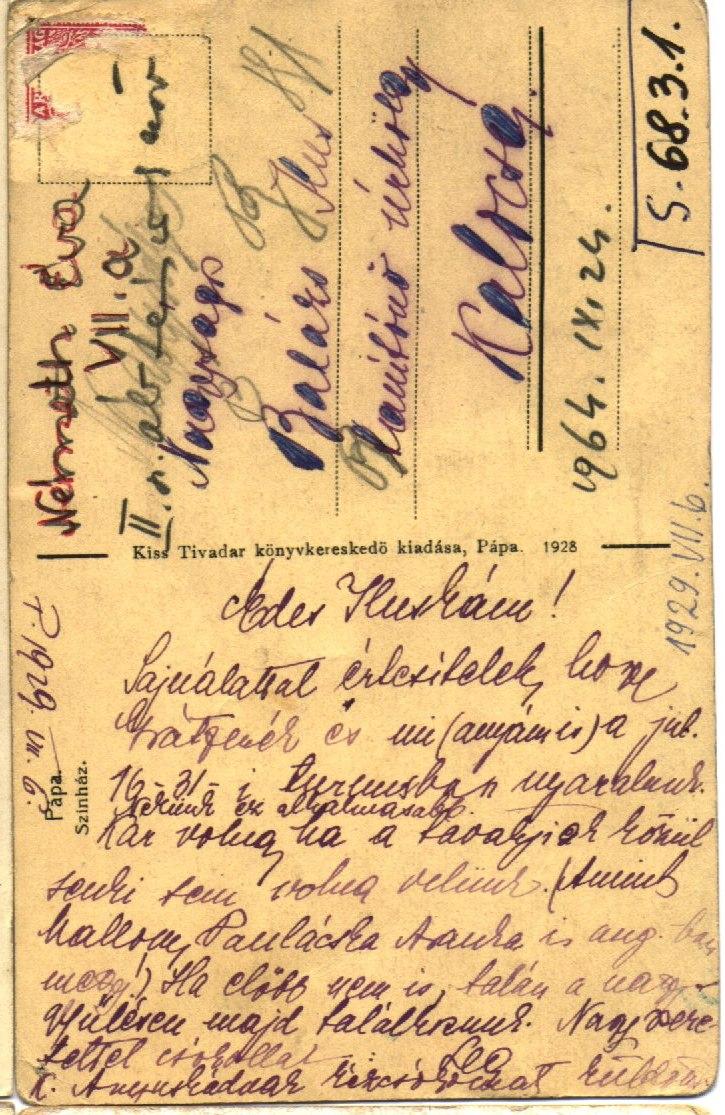 S. 68.3.1.
Németh Éva
VII. a
Nagysága
Balázs Ilus
tanítónő
Kalocsa.
1964. IX. 24.
Kiss Tivadar könyvkereskedö kiadása, Pápa. 1928
1929. VII. 6.
P. 1929. VII. 6.
Pápa.
Szinház.
Édes Iluskám!
Sajnálattal értesitelek, hogy
és mi (anyám is) a jul.
16-31-i turnusban nyaralunk.
nekünk ez alkalmasabb.
Kár volna, ha a tavalyiak közül
senki sem volna velünk. (Amint
hallom, Paulácska Aranka is aug.-ban
megy!) Ha előbb nem is, talán a nagy-
gyűlésen majd találkozunk. Nagy szere-
tettel csókollak
K. Anyuskádnak kézcsókomat küldöm